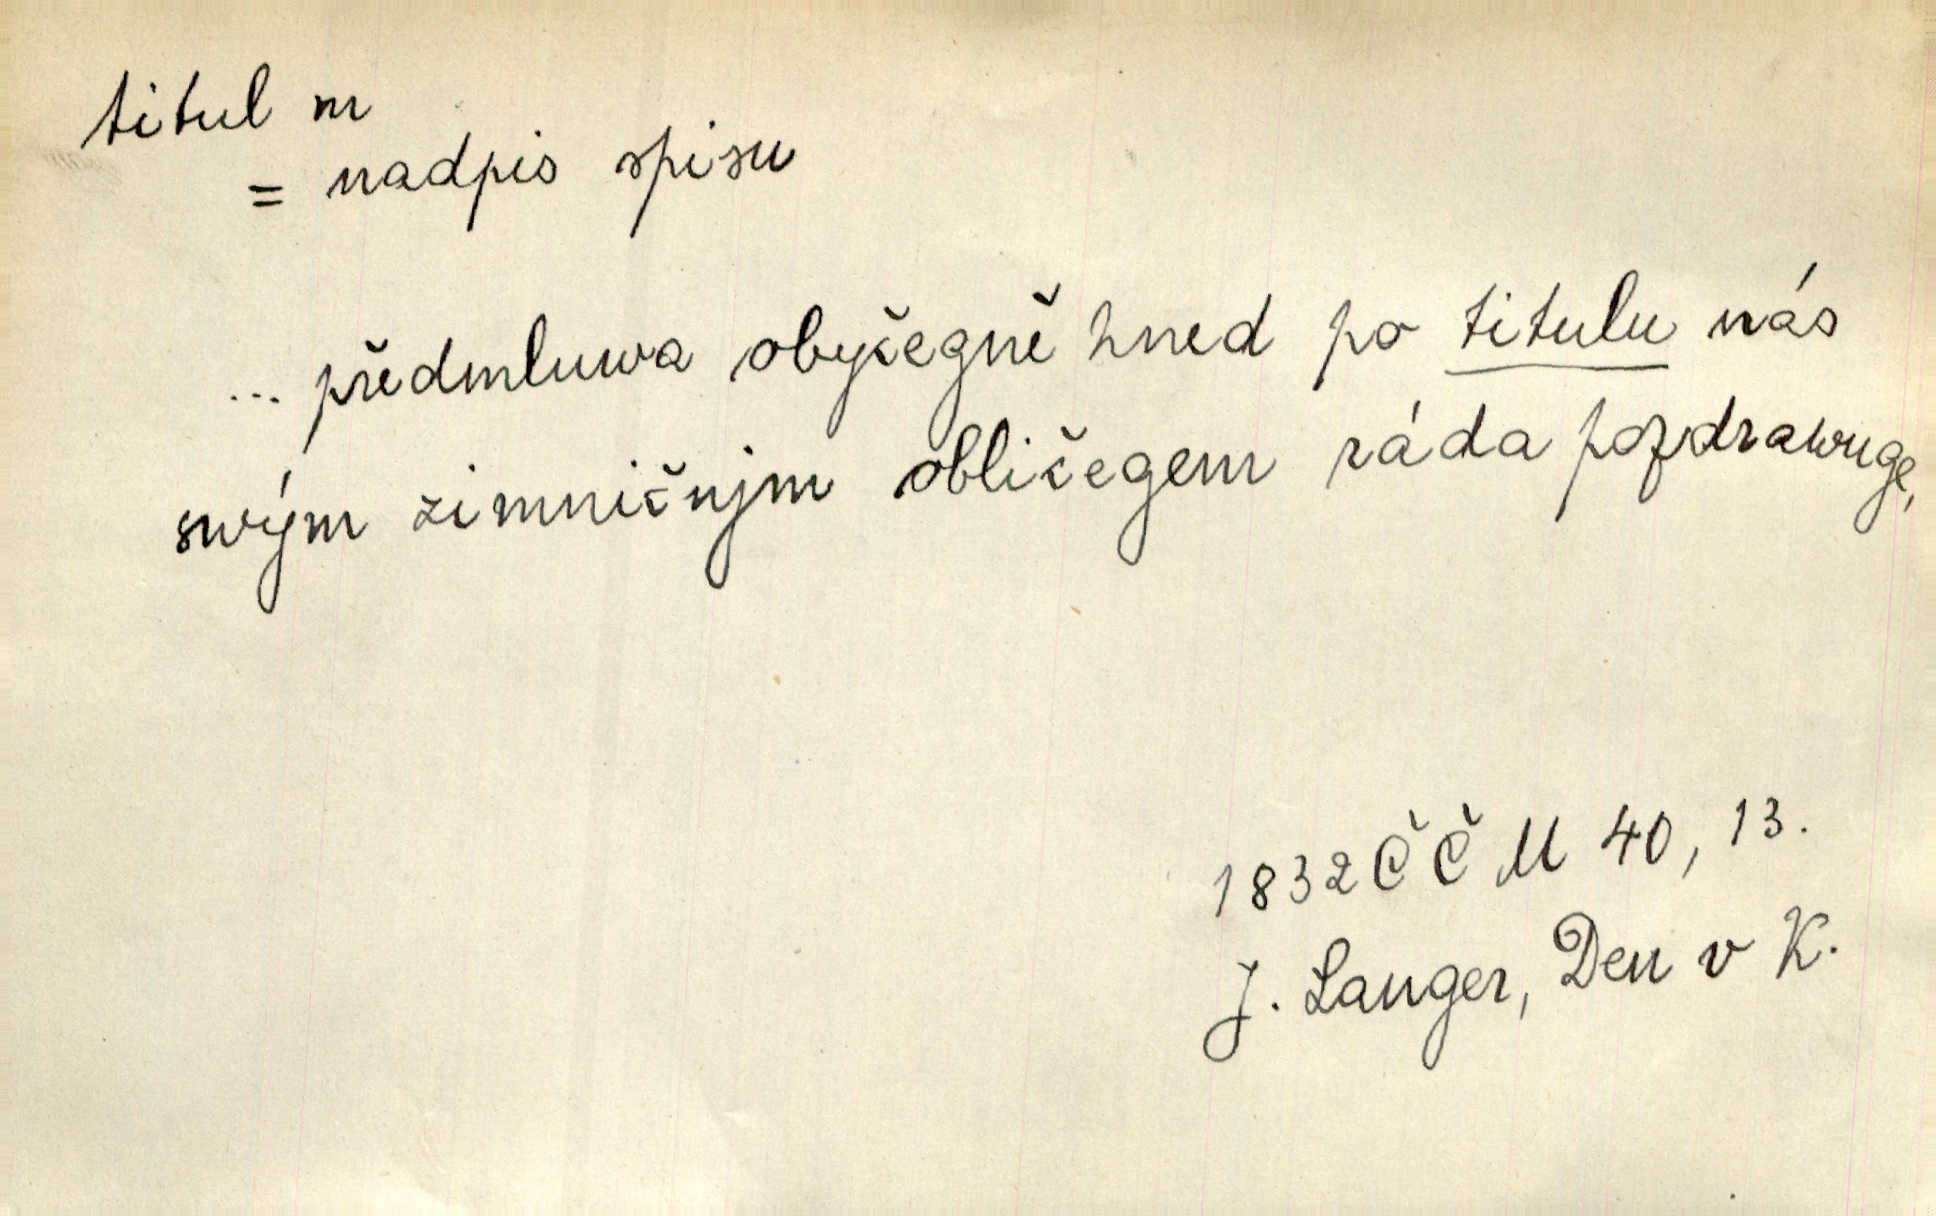 titul m
= nadpis spisu
... předmluwa obyčegně hned po titulu nás
swým zimničnjm obličegem ráda pozdrawuge,
1832 ČČM 40, 13.
J. Langer, Den v K.